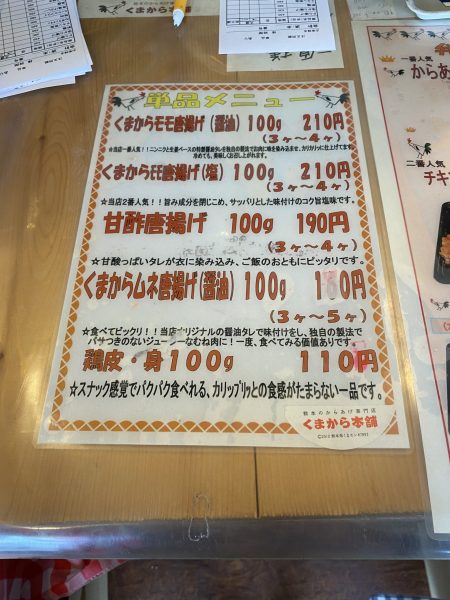 くまから本舗
単品メニュー
くまからモモ唐揚げ(醤油) 100g 210円
(3ヶ~4ヶ)
☆当店一番人気!!ニンニクと生姜ベースの特製醤油タレを独自の製法でお肉に味を染み込ませ、カリカリッに仕上げてます
冷めても、美味しくお召し上がれます。
くまからモモ唐揚げ(塩) 100g 210円
(3ヶ~4ヶ)
☆当店2番人気!!旨み成分を閉じこめ、サッパリとした味付けのコク旨塩味です。
甘酢唐揚げ 100g 190円
(3ヶ~4ヶ)
☆甘酸っぱいタレが衣に染み込み、ご飯のおともにピッタリです。
くまからムネ唐揚げ(醤油) 100g 1 0円
(3ヶ~5ヶ)
☆食べてビックリ!!当店オリジナルの醤油タレで味付けをし、独自の製法で
パサつきのないジューシーなむね肉に!一度、食べてみる価値あります。
鶏皮・身100g 110円
☆スナック感覚でパクパク食べれる、カリップリッとの食感がたまらない一品です。
熊本のからあげ専門店
くまから本舗
一番人気
からあ
二番人気
チキ